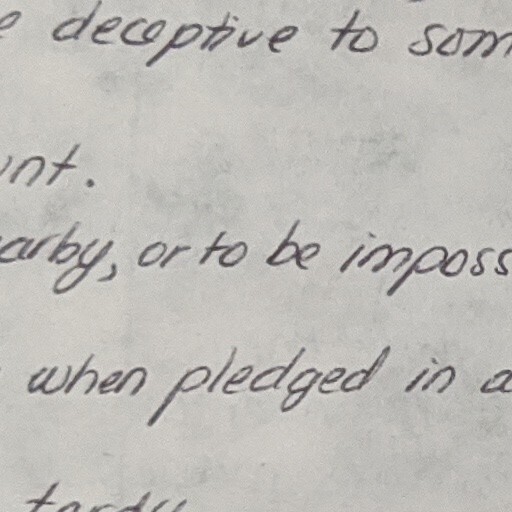 e deceptive to som
unt.
arby, or to be imposs
when pledged in a
tardy